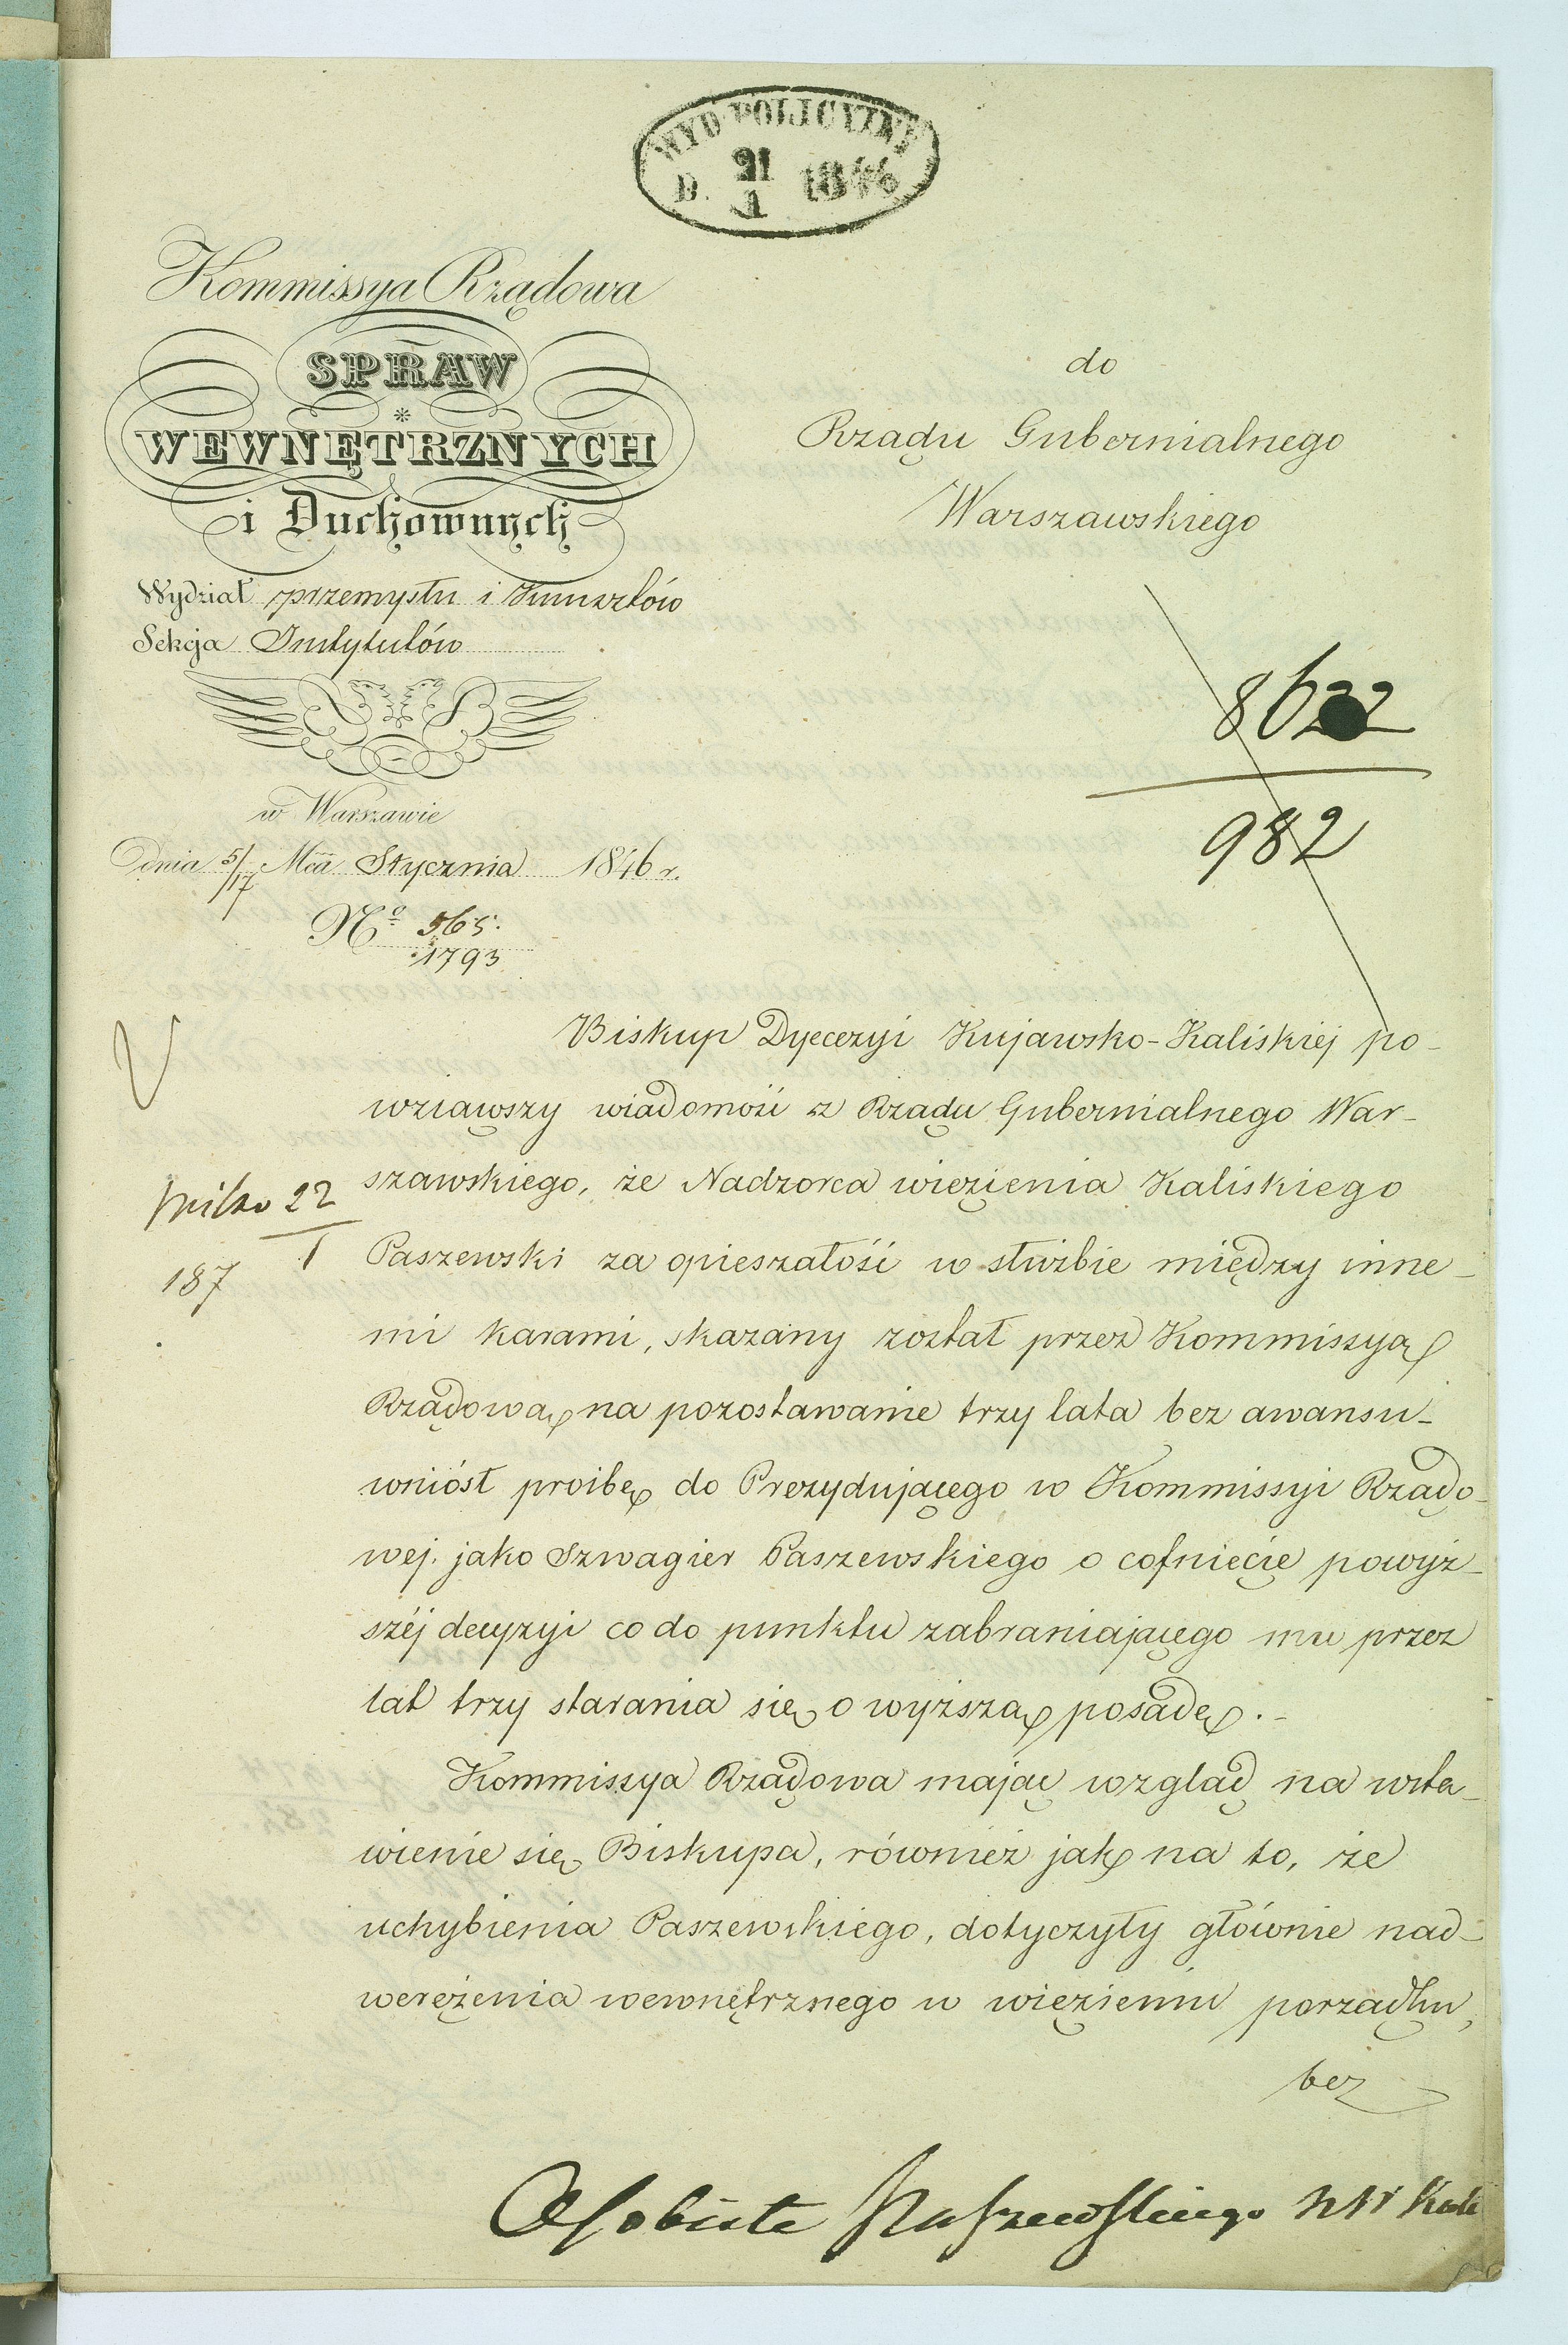 WYD POLICYINY
D. 21/1 1846
Kommissya Rządowa
SPRAW
WEWNĘTRZNYCH
i Duchownych
Wydział przemysłu i Kunsztów
Sekcja Instytutów
w Warszawie
Dnia 5/17 Mca Stycznia 1846 r.
No 565.
1793
do
Rządu Gubernialnego
Warszawskiego
8622
982
Biskup Dyecezyi Kujawsko-Kaliskiej po-
wziąwszy wiadomość z Rządu Gubernialnego War-
szawskiego, że Nadzorca więzienia Kaliskiego
22
1
187
Paszewski za opieszałość w służbie między inne-
mi karami, skazany został przez Kommissyą
Rządową na pozostawanie trzy lata bez awansu-
wniósł prośbę do Prezydującego w Kommissyi Rządo-
wej. jako Szwagier Paszewskiego o cofnięcie powyż-
széj decyzyi co do punktu zabraniającego mu przez
lat trzy starania się o wyższą posadę.-
Kommissya Rządowa mając wzgląd na wsta-
wienie się Biskupa, również jak na to, że
uchybienia Paszewskiego, dotyczyły głównie nad-
werężenia wewnętrznego w więzieniu porządku,
bez
Osobiste Paszewskiego